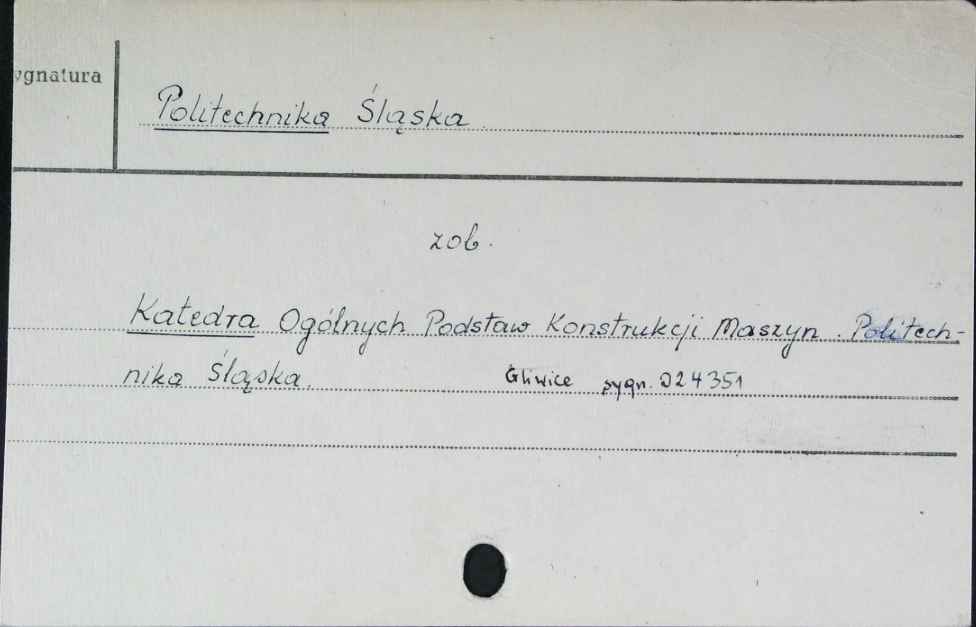 ygnatura
Politechnika Śląska
zob.
Katedra Ogólnych Podstaw Konstrukcji Maszyn. Politech-
nika Śląska. Gliwice sygn. D24351